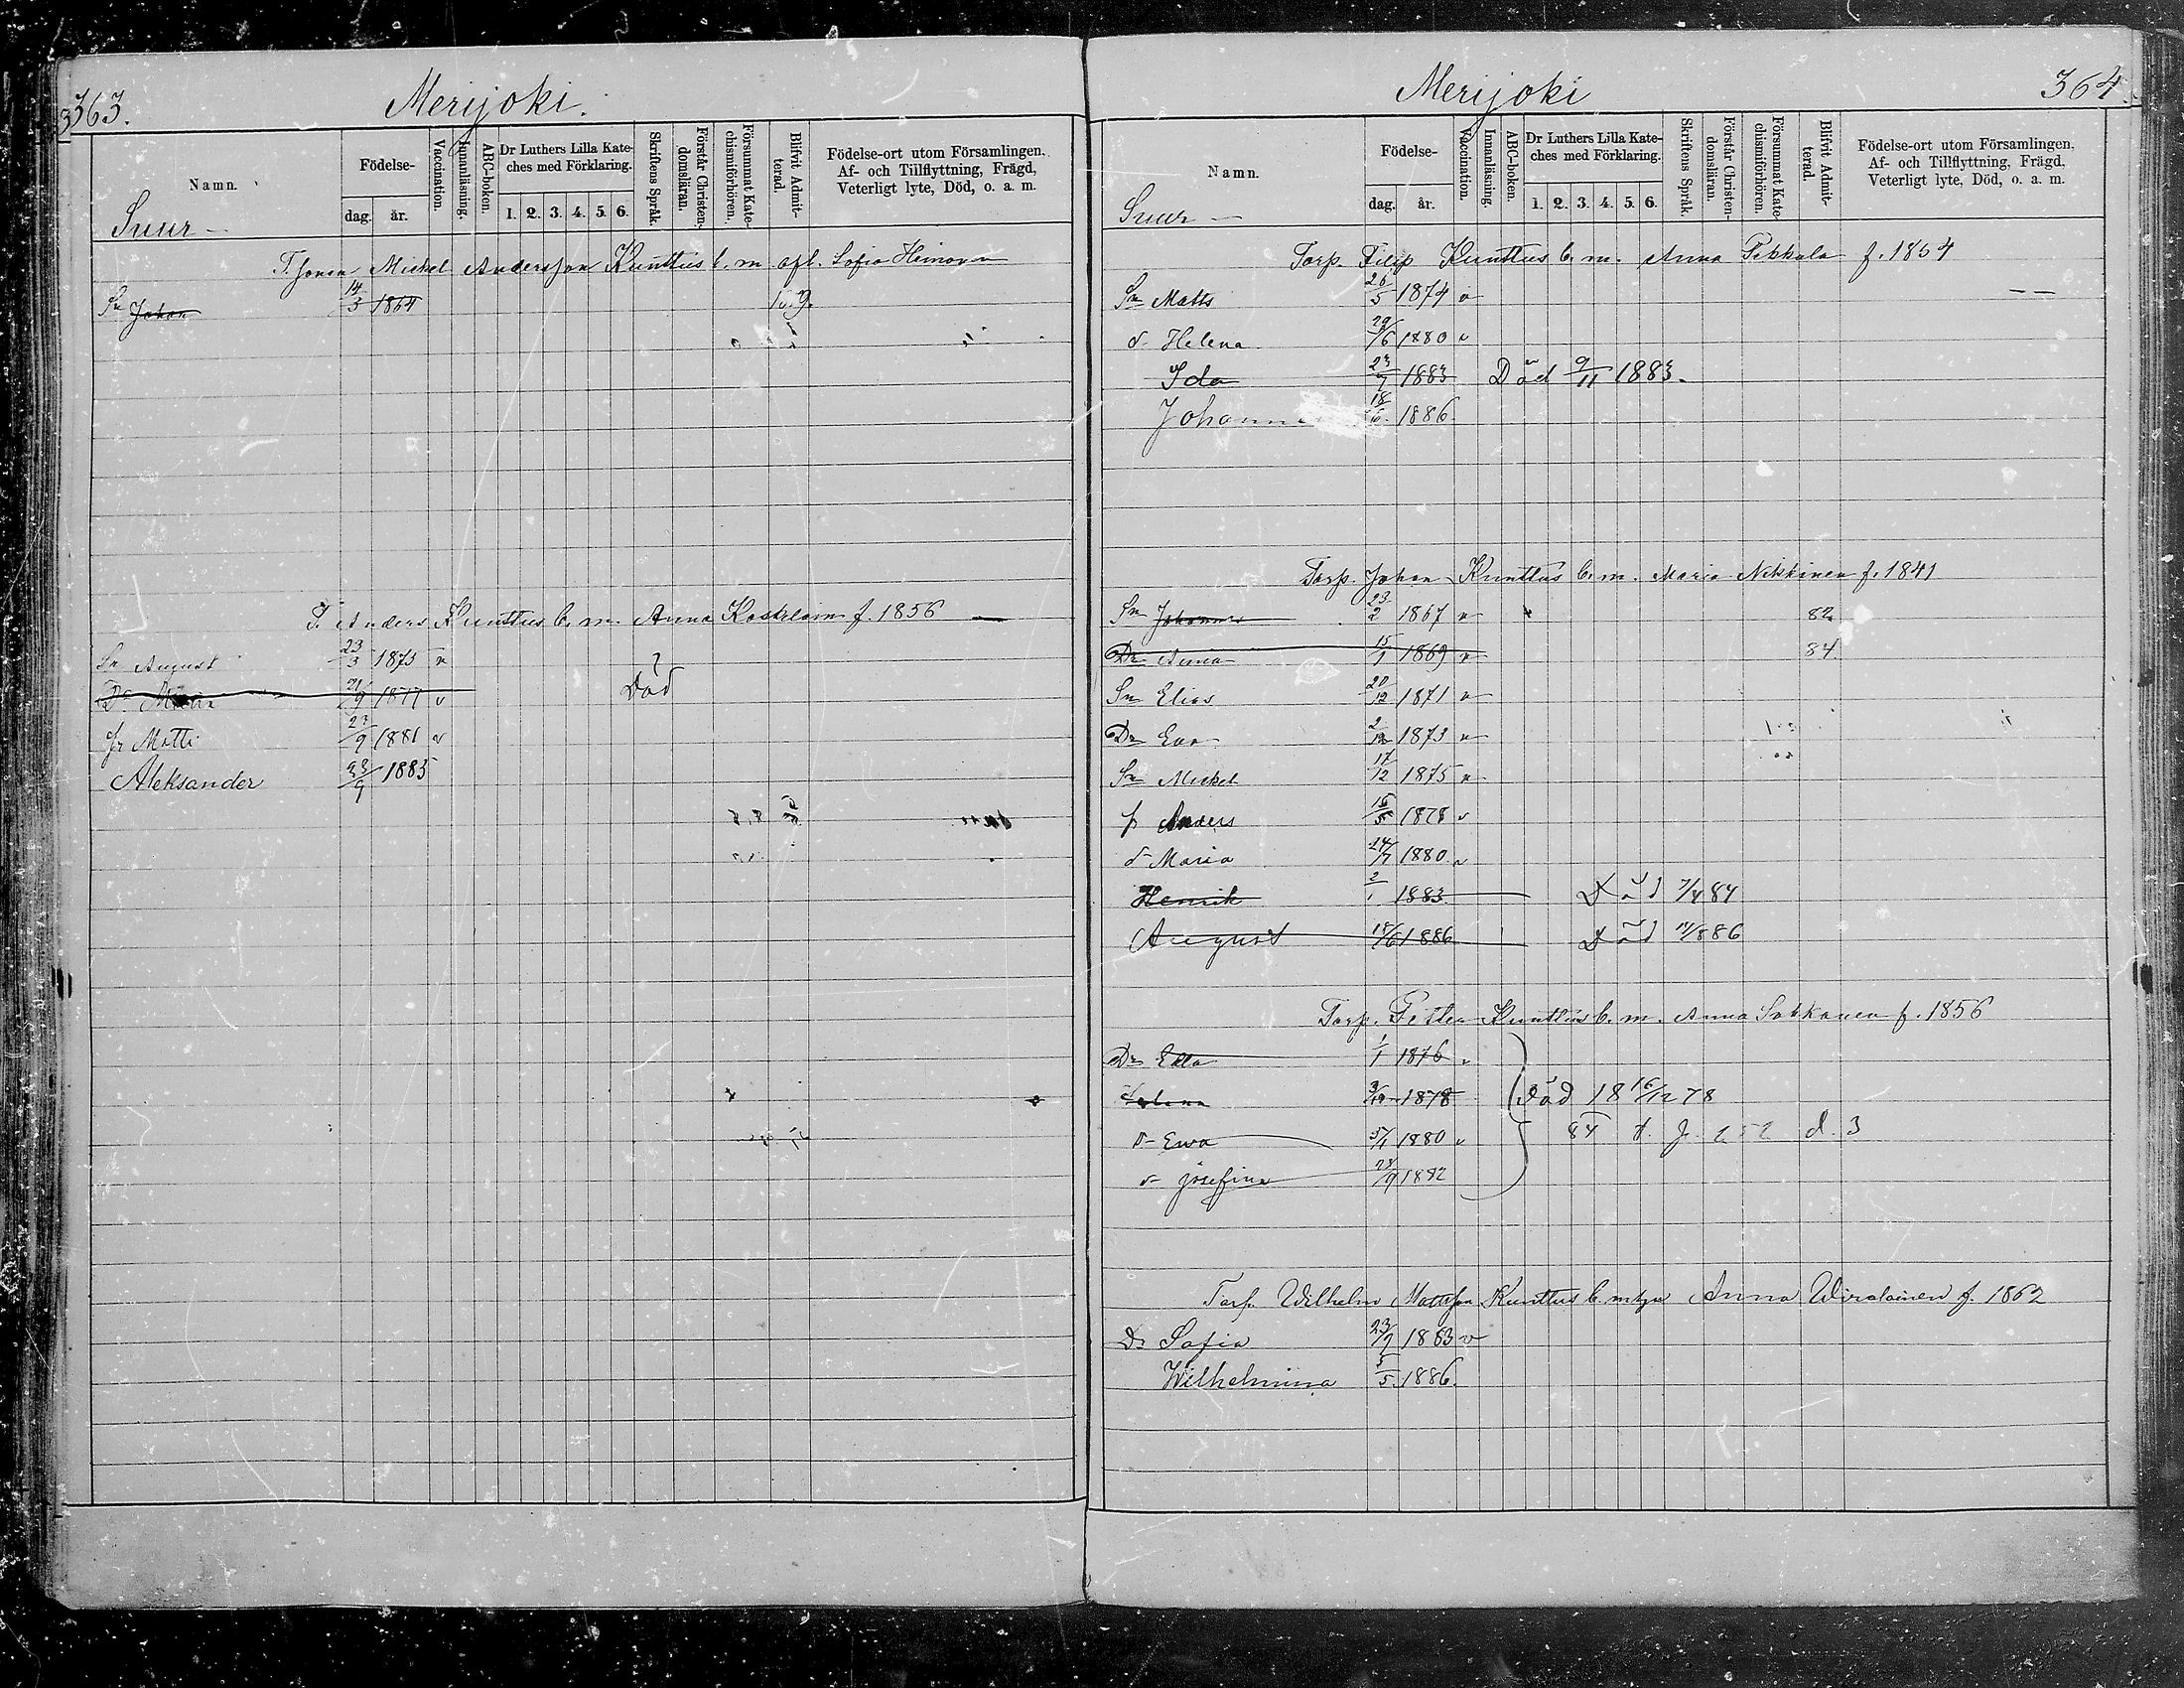 363.
Merijoki.
Namn.
Födelse-
dag. år.
Vaccination.
Innanläsning.
ABC-boken.
Dr Luthers Lilla Kate-
ches med Förklaring.
1. 2. 3. 4. 5. 6.
Skriftens Språk.
Förstår Christen-
domsläran.
Försummat Kate-
chismiförhören.
Blifvit Admit-
terad.
Födelse-ort utom Församlingen.
Af- och Tillflyttning, Frägd,
Veterligt lyte, Död, o. a. m.
Suur -
Michel Andersson Kunttus b. m. Sofia
Sn Johan 14/3 1864
T. Anders Kunttus b. m. Anna f. 1856 —
Sn August 23/3 1875 v
Dr 1877 v Död
Matti 23/9 1881 v
Aleksander 23/9 1885
Merijoki
364.
Namn.
Födelse-
dag. år.
Vaccination.
Innanläsning.
ABC-boken.
Dr Luthers Lilla Kate-
ches med Förklaring.
1. 2. 3. 4. 5. 6.
Skriftens Språk.
Förstår Christen-
domsläran.
Försummat Kate-
chismiförhören.
Blifvit Admit-
terad.
Födelse-ort utom Församlingen.
Af- och Tillflyttning, Frägd,
Veterligt lyte, Död, o. a. m.
Suur —
Torp. Filip Kunttus b. m. Anna Pekkola f. 1854
Sn Matts 26/5 1874 v
d- Helena 29/6 1880 v
Ida 23/7 1883 Död 9/11 1883.
1886.
Torp. Johan Kunttus b. m. Maria Nikkinen f. 1841
Sn Johannes 23/2 1867 v 82
Dr Anna 15/1 1869 v 84
Sn Elias 20/12 1871 v
Dr Eva 2/12 1873 v
Sn Mickel 17/12 1875 v
Anders 16/5 1878 v
d- Maria 24/7 1880 v
Henrik 2/1 1883 Död 7/4 84
August 18/6 1886 Död 886
Torp. Petter Kunttus b. m. Anna Sokkanen f. 1856
Dr Ella 1/1 1876 v
Helena 1878 Död 18 16/12 78
d- Ewa 5/1 1880 v 84 d. 3
d- Josefina 28/9 1882
Torp. Wilhelm Mattsson Kunttus b. Anna Wirolainen f. 1862
Dr Sofia 1883 v
Wilhelmina 5/5 1886.